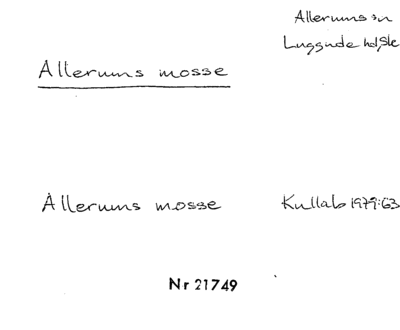 Allerums sn
Luggude hd, Sk
Allerums mosse
Allerums mosse Kullab 1979:63
Nr 21749